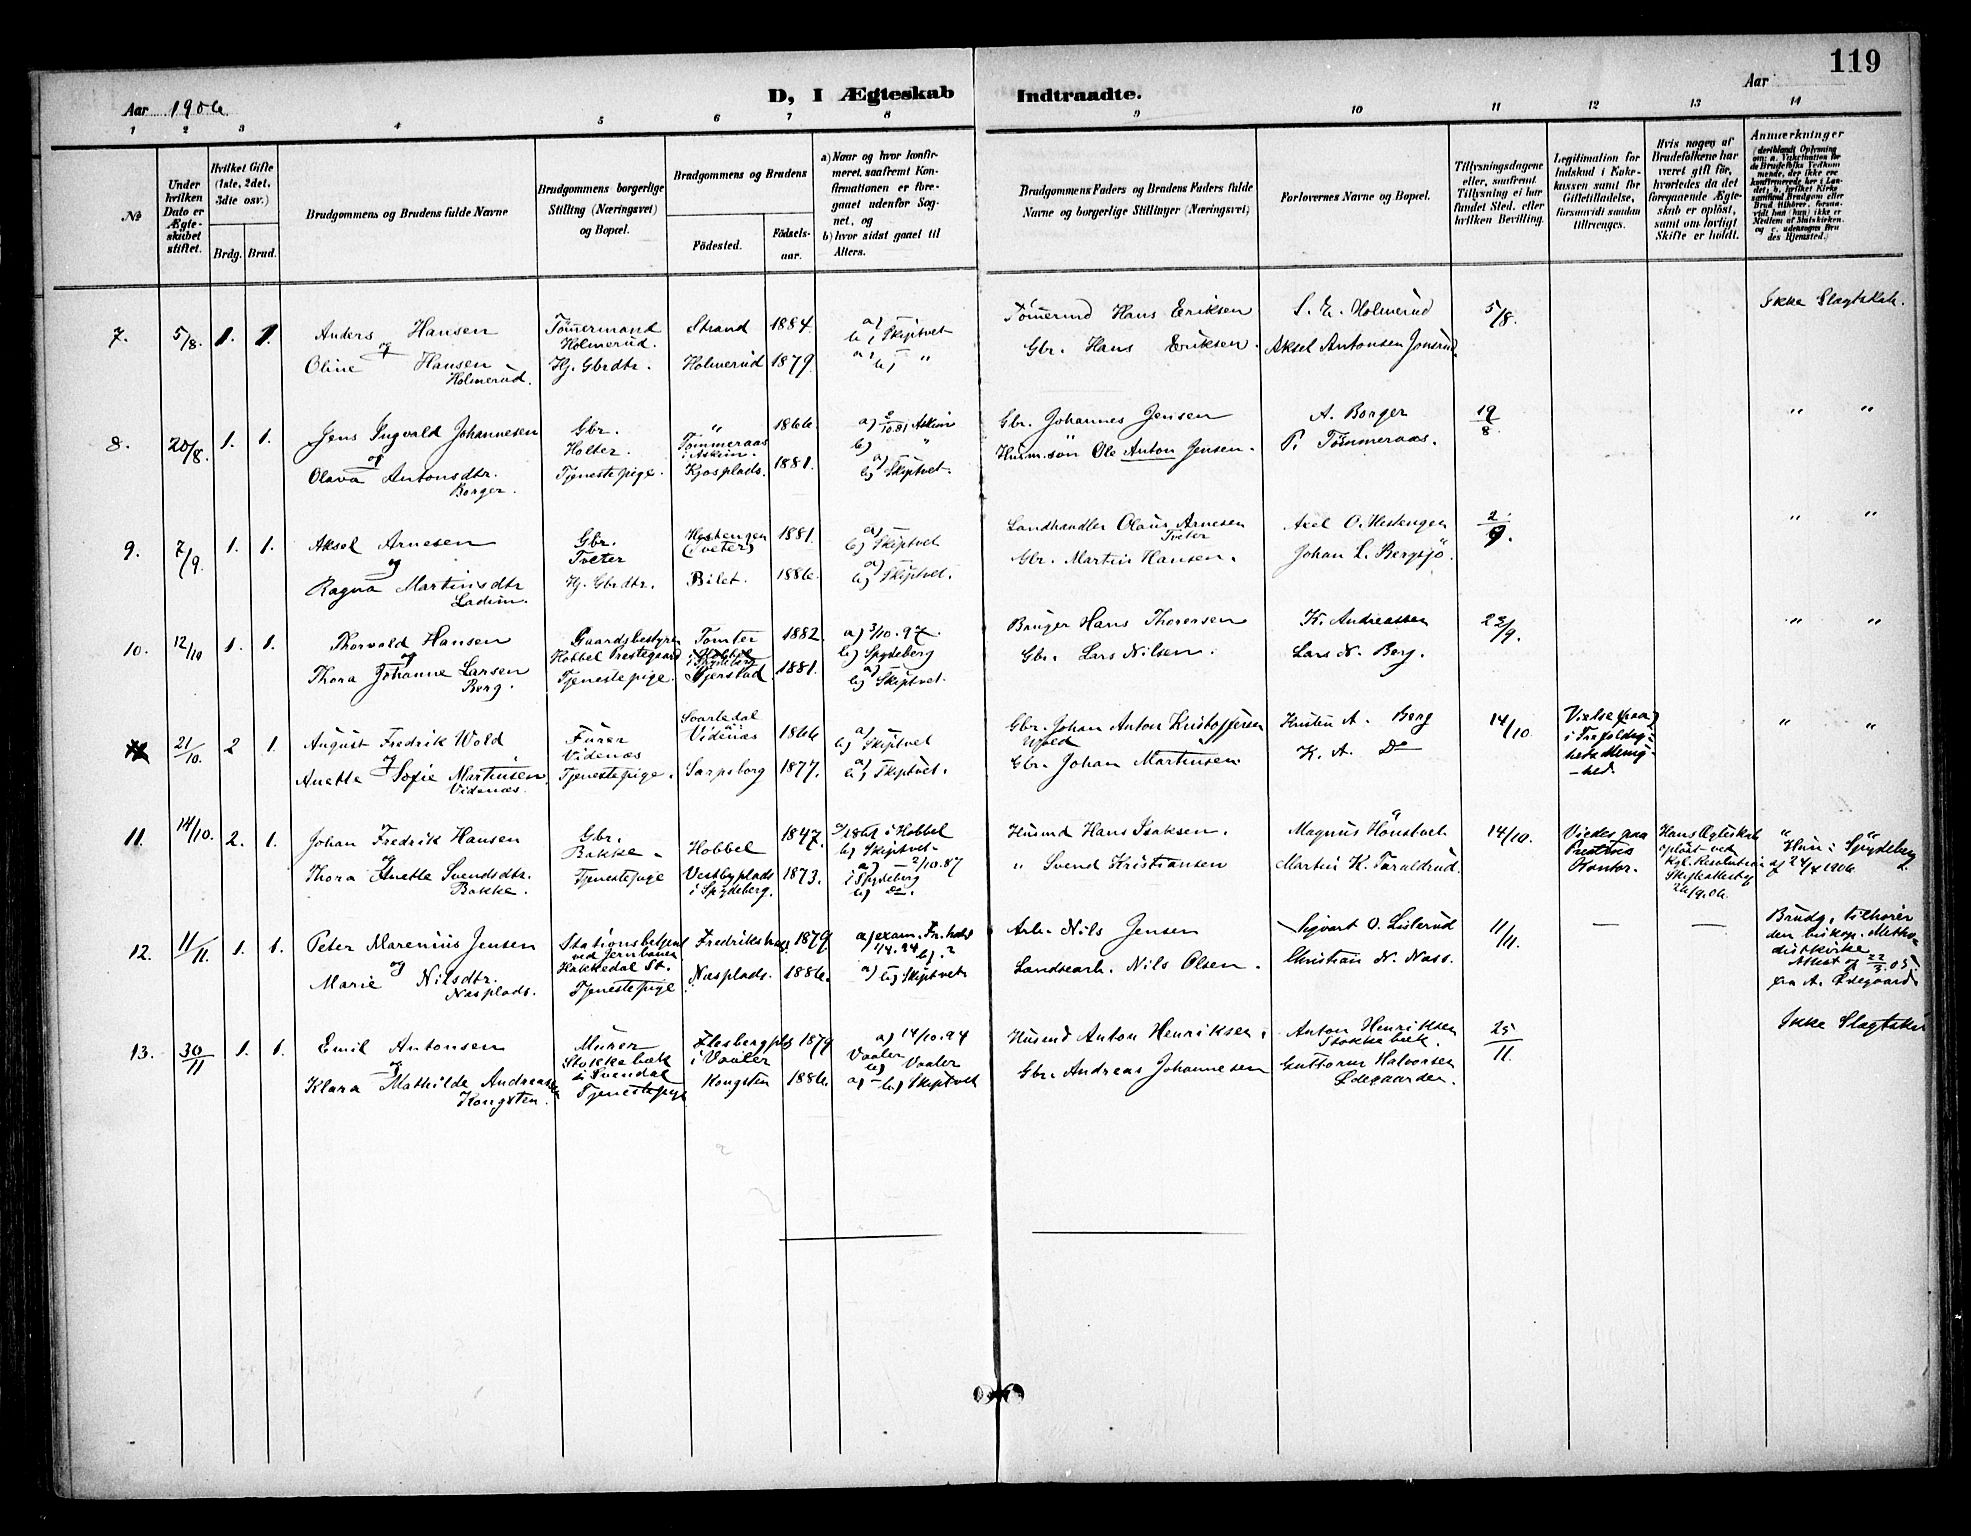 119
Aar 1906
D, I Ægteskab Indtraadte.
Aar
1 2 3 4 5 6 7 8 9 10 11 12 13 14
No
Under hvilken Dato er Ægteskabet stiftet.
Hvilket Gifte (1ste, 2det, 3die osv.)
Brdg. Brud.
Brudgommens og Brudens fulde Navne
Brudgommens borgerlige Stilling (Næringsvei) og Bopæl.
Brudgommens og Brudens
Födested. Födselsaar.
a) Naar og hvor konfirmeret, saafremt Konfirmationen er foregaaet udenfor Sognet, og
b) hvor sidst gaaet til Alters.
Brudgommens Faders og Brudens Faders fulde Navne og borgerlige Stillinger (Næringsvei)
Forlovernes Navne og Bopæl.
Tillysningsdagene eller, saafremt Tillysning ei har fundet Sted, efter hvilken Bevilling.
Legitimation for Indskud i Enkekassen samt for Giftetilladelse, forsaavidt saadan tiltrænges.
Hvis nogen af Brudefolkene har været gift för, hvorledes da det foregaaende Ægteskab er oplöst, samt om lovligt Skifte er holdt.
Anmærkninger
7. 5/8. 1. 1. Anders Hansen Tömmermand Strand 1884. a) — Hans Eriksen S. E. Holmerud 5/8. Ikke Slagtskab.
og Holmerud. b) Skiptvet
Oline Hansen Hj. Gbrdtr. Holmerud 1879. a) b) — " Gbr. Hans Eriksen. Aksel Antonsen Jonsrud
Holmerud.
8. 20/8. 1. 1. Jens Ingvald Johannesen Gbr. " 1866. a) 2/10.81 Askim Gbr. Johannes Jensen A. Borger 19/8 " "
og Holter. Tömmeraas i Askim. b) "
Olava Antonsdtr. Tjenestepige. Kjosplads. 1881. a) — b) Skiptvet. Ole Anton Jensen. P. Tömmeraas.
Borger.
9. 7/9. 1. 1. Aksel Arnesen Gbr. Hestengen 1881. a) — Landhandler Olaus Arnesen Axel O. Hestengen 2/9. " "
og Tveter (Tveter) b) Skiptvet Tveter
Ragna Martinsdtr Hj. Gbrdtr. Bilet. 1886. a) — b) Skiptvet. Gbr. Martin Hansen. Johan L. Bergsjö.
10. 12/10 1. 1. Thorvald Hansen Gaardsbestyrer Tomter 1882 a) 3/10.97. Bruger Hans Thoresen K. Andreassen 23/9. " "
og Hobbel Prestegaard i Hobbel b) Spydeberg
Thora Johanne Larsen Tjenestepige. 1881. a) — b) Skiptvet. Gbr. Lars Nilsen. Lars N. Berg.
Berg.
21/10. 2 1. August Fredrik Wold Videnæs 1866 a) — Gbr. Johan Anton Kristoffersen Kristen A. Berg 14/10 " "
og Videnæs b) Skiptvet Wold
Anette Sofie Martinsen Tjenestepige. Sarpsborg 1877. a) — b) Skiptvet. Gbr. Johan Martinsen. K. A. Do
Videnæs.
11. 14/10. 2. 1. Johan Fredrik Hansen Gbr. Hobbel 1847. i Hobbel Husmd Hans Isaksen. Magnus Hönstvet 14/10. Viedes paa Prestens Kontor. Hans Ægteskab oplöst ved Kgl. Resolution
og Bakke. b) Skiptvet Hun i Spydeberg
Thora Anette Svendsdtr. Tjenestepige Vestbyplads 1873. a) 2/10.87 " Svend Kristiansen Martin K. Taraldrud.
Bakke. i Spydeberg. i Spydeberg b) Do. 26/9.06
12. 11/11 1. 1. Peter Marenius Jensen Stationsbetjent Fredrikshald. 1879 a) exam. Fr.hald Arb. Nils Jensen Sigvart O. Lislerud 11/11. — — Brudg. tilhörer
og ved Jernbanen b) ? den biskop. Methodistkirke
Marie Nilsdtr. Hakkedal St. Næsplads. 1886. a) b) Skiptvet Nils Olsen. Christian N. Næss. Attest af 22/3.05
Næsplads. Tjenestepige fra A. Ödegaard
13. 30/11 1. 1. Emil Antonsen Murer 1879 a) 14/10.94 Husmd Anton Henriksen. Anton Henriksen 25/11. Ikke Slagtskab
og Stokkebæk i Vaaler Vaaler b) Vaaler Stokkebæk.
Klara Mathilde Andreasen i Svendal Kongsten 1886. a) — b) Skiptvet Gbr. Andreas Johannesen Guttorm Halvorsen
Kongsten. Tjenestepige Ödegaarden.